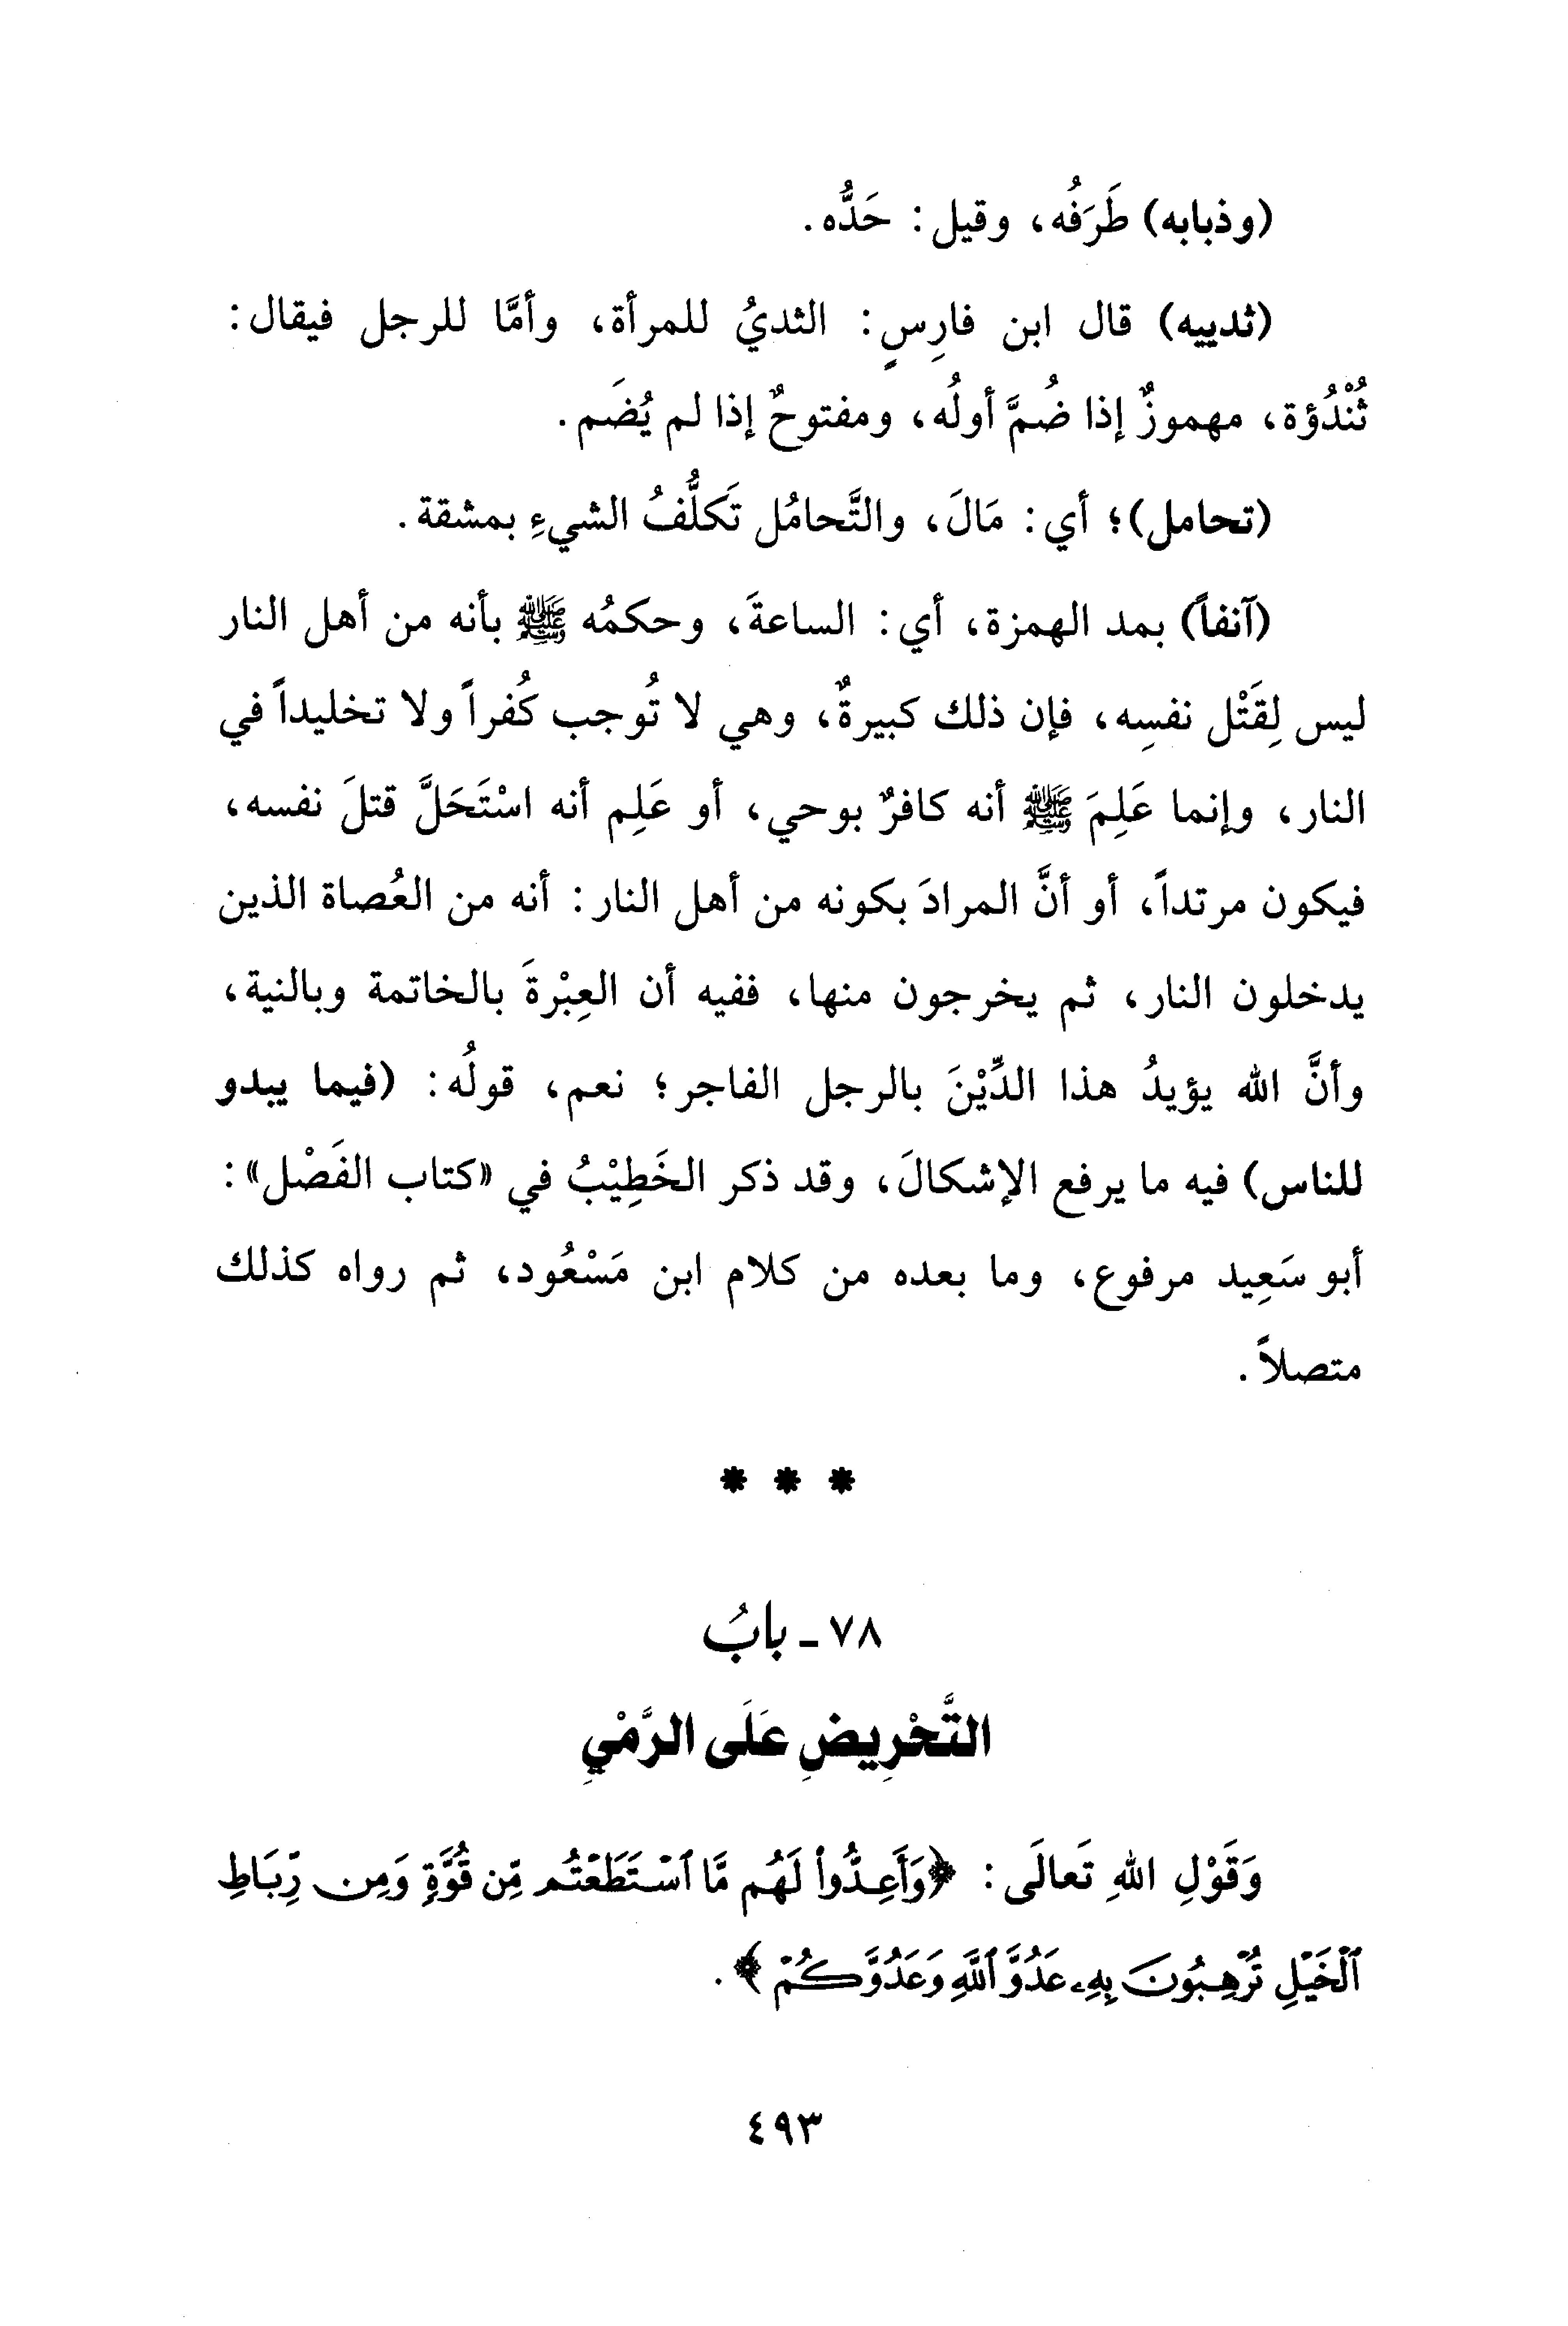 (وذبابه) طَرَفُه، وقيل: حَدُّه.
(ثدييه) قال ابن فارِسٍ: الثديُ للمرأة، وأمَّا للرجل فيقال:
ثُنْدُؤة، مهموزٌ إذا ضُمَّ أولُه، ومفتوحٌ إذا لم يُضَم.
(تحامل)؛ أي: مَالَ، والتَّحامُل تَكلُّفُ الشيءِ بمشقة.
(آنفاً) بمد الهمزة، أي: الساعةَ، وحكمُه ﷺ بأنه من أهل النار
ليس لِقَتْل نفسِه، فإن ذلك كبيرةٌ، وهي لا تُوجب كُفراً ولا تخليداً في
النار، وإنما عَلِمَ ﷺ أنه كافرٌ بوحي، أو عَلِم أنه اسْتَحَلَّ قتلَ نفسه،
فيكون مرتداً، أو أنَّ المرادَ بكونه من أهل النار: أنه من العُصاة الذين
يدخلون النار، ثم يخرجون منها، ففيه أن العِبْرةَ بالخاتمة وبالنية،
وأنَّ الله يؤيدُ هذا الدِّيْنَ بالرجل الفاجر؛ نعم، قولُه: (فيما يبدو
للناس) فيه ما يرفع الإشكالَ، وقد ذكر الخَطِيْبُ في «كتاب الفَصْل»:
أبو سَعِيد مرفوع، وما بعده من كلام ابن مَسْعُود، ثم رواه كذلك
متصلاً.
* * *
٧٨ - بابُ
التَّحْرِيضِ عَلَى الرَّمْيِ
وَقَوْلِ اللهِ تَعالَى: ﴿وَأَعِدُّوا۟ لَهُم مَّا ٱسْتَطَعْتُم مِّن قُوَّةٍ وَمِن رِّبَاطِ
ٱلْخَيْلِ تُرْهِبُونَ بِهِۦ عَدُوَّ ٱللَّهِ وَعَدُوَّكُمْ﴾.
٤٩٣